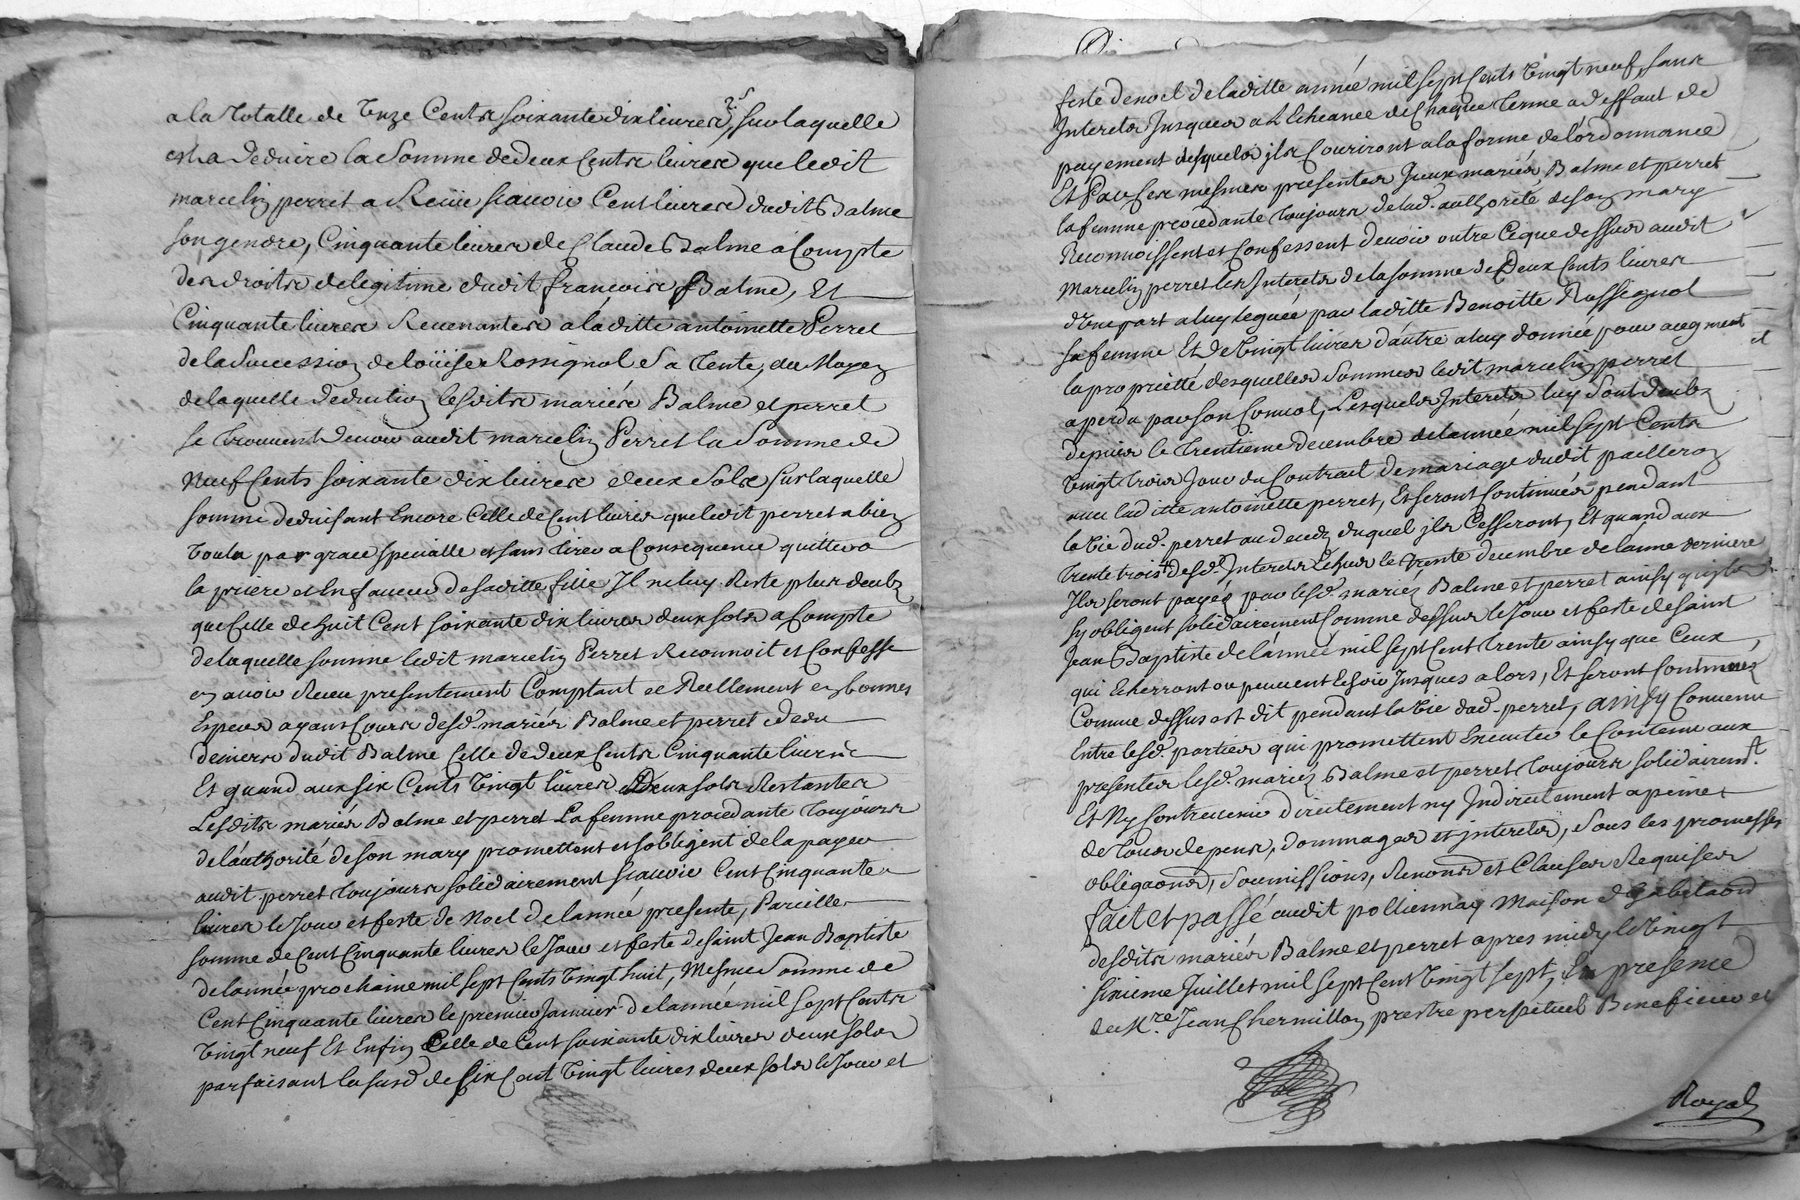 a la Totalle de Onze Cents soixante dix livres 2s, sur laquelle
est a deduire la somme de deux Cents livres que ledit
marcelin perret a Receüe scavoir Cent livres dudit Balme
son gendre, Cinquante livres de Claude Balme a Compte
des droits de legitime dudit francois Balme, Et
Cinquante livres Revenantes a laditte antoinette Perret
de la Succession de loüise Rossignol Sa tente, au Moyen
de laquelle deduction lesdits mariés Balme et perret
se trouvent devoir audit marcelin Perret la Somme de
Neuf Cents soixante dix livres deux Sols sur laquelle
somme deduisant Encore Celle de Cent livres que ledit perret a bien
voulu par grace specialle et sans tirer a Consequence quitter a
la priere et En faveur de saditte fille Il ne luy Reste plus deub
que Celle de huit Cent soixante dix livres deux sols a Compte
de laquelle somme ledit marcelin Perret Reconnoit et Confesse
en avoir Receu presentement Comptant et Reellement en bonnes
Especes ayant Cours desd. mariés Balme et perret et des
deniers dudit Balme Celle de deux Cents Cinquante livres
Et quand aux six Cents Vingt livres Deux sols Restantes
Lesdits mariés Balme et perret La femme procedante toujours
de l'authorité de son mary promettent et s'obligent de la payer
audit perret toujours solidairement scavoir Cent Cinquante
livres le Jour et feste de Noel de l'année presente, Pareille
somme de Cent Cinquante livres le Jour et feste de saint Jean Baptiste
de l'année prochaine mil sept Cents Vingt huit, Mesme Somme de
Cent Cinquante livres le premier Janvier de l'année mil sept Cents
Vingt neuf Et Enfin Celle de Cent soixante dix livres deux sols
parfaisant la susd. de six Cent Vingt livres deux sols le Jour et
feste de noel de laditte année mil sept Cents Vingt neuf, sans
Interets Jusques a L'Echeance de Chaque terme a deffaut de
payement desquels ils Couriront a la forme de l'ordonnance
Et Par Ces mesmes presentes Iceux mariés Balme et perret
la femme procedante toujours de lad. authorité de son mary
Reconnoissent et Confessent devoir outre Ce que dessus audit
Marcelin perret les Interets de la somme de Deux Cents livres
d'Une part a luy leguée par laditte Benoitte Rossignol
sa femme Et de Vingt livres d'autre a luy donnée pour augment
la proprietté desquelles sommes ledit marcelin perret
a perdu par son Convol, Lesquels Interets luy sont deubs
depuis le trentieme decembre de l'année mil sept Cents
Vingt trois Jour du Contract de mariage dudit pailleron
avec laditte antoinette perret, Et seront Continués pendant
la Vie dud. perret au deceds duquel ils Cesseront, Et quand aux
trente trois desd. Interets Echus le trente decembre de l'année derniere
Ils seront payés par lesd. mariés Balme et perret ainsy qu'ils
s'y obligent solidairement Comme dessus le Jour et feste de saint
Jean Baptiste de l'année mil sept Cent trente ainsy que Ceux
qui Echerront ou peuvent Echoir Jusques alors, Et seront Continués
Comme dessus est dit pendant la Vie dud. perret, ainsy Convenu
Entre lesd. parties qui promettent Executer le Contenu aux
presentes lesd. mariés Balme et perret toujours solidairemt.
Et N'y Contrevenir directement ny Indirectement a peine
de tous depens, dommages et interets, sous les promesses
obligaons, soumissions, Renons et Clauses Requises
fait et passé audit pollionnay Maison d'habitaon
desdits mariés Balme et perret apres midy le Vingt
sixieme Juillet mil sept Cent Vingt sept, En presence
de Mre. Jean Chermillon prestre perpetuel Beneficier et
Royal